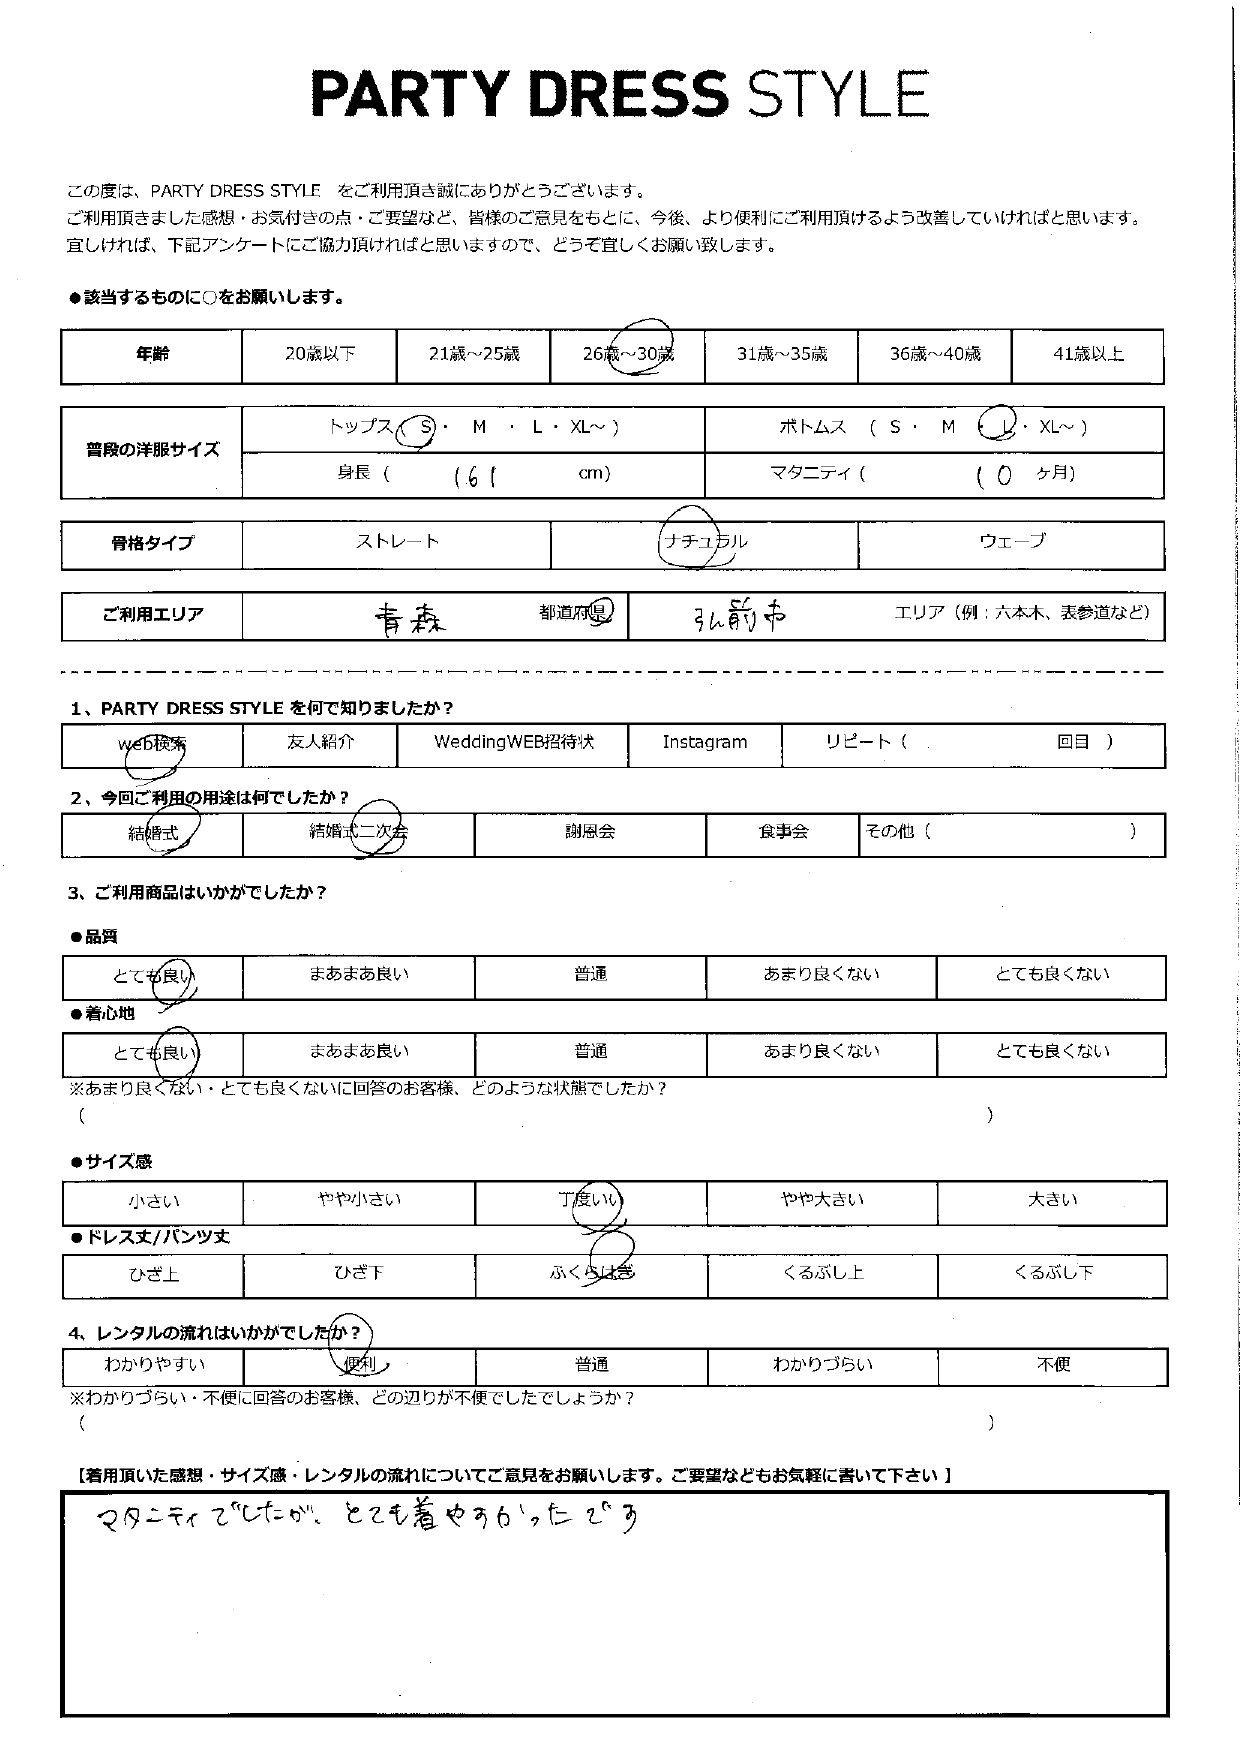 PARTY DRESS STYLE
この度は、PARTY DRESS STYLE をご利用頂き誠にありがとうございます。
ご利用頂きました感想・お気付きの点・ご要望など、皆様のご意見をもとに、今後、より便利にご利用頂けるよう改善していければと思います。
宜しければ、下記アンケートにご協力頂ければと思いますので、どうぞ宜しくお願い致します。
●該当するものに○をお願いします。
年齢 20歳以下 21歳～25歳 26歳～30歳 31歳～35歳 36歳～40歳 41歳以上
普段の洋服サイズ トップス( S ・ M ・ L ・ XL～ ) ボトムス ( S ・ M ・ L ・ XL～ )
身長 ( 161 cm) マタニティ ( 10 ヶ月)
骨格タイプ ストレート ナチュラル ウェーブ
ご利用エリア 青森 都道府県 弘前市 エリア（例：六本木、表参道など）
1、PARTY DRESS STYLE を何で知りましたか？
web検索 友人紹介 WeddingWEB招待状 Instagram リピート（ 回目 ）
2、今回ご利用の用途は何でしたか？
結婚式 結婚式二次会 謝恩会 食事会 その他（ ）
3、ご利用商品はいかがでしたか？
●品質
とても良い まあまあ良い 普通 あまり良くない とても良くない
●着心地
とても良い まあまあ良い 普通 あまり良くない とても良くない
※あまり良くない・とても良くないに回答のお客様、どのような状態でしたか？
（ ）
●サイズ感
小さい やや小さい 丁度いい やや大きい 大きい
●ドレス丈/パンツ丈
ひざ上 ひざ下 ふくらはぎ くるぶし上 くるぶし下
4、レンタルの流れはいかがでしたか？
わかりやすい 便利 普通 わかりづらい 不便
※わかりづらい・不便に回答のお客様、どの辺りが不便でしたでしょうか？
（ ）
【着用頂いた感想・サイズ感・レンタルの流れについてご意見をお願いします。ご要望などもお気軽に書いて下さい 】
マタニティでしたが、とても着やすかったです